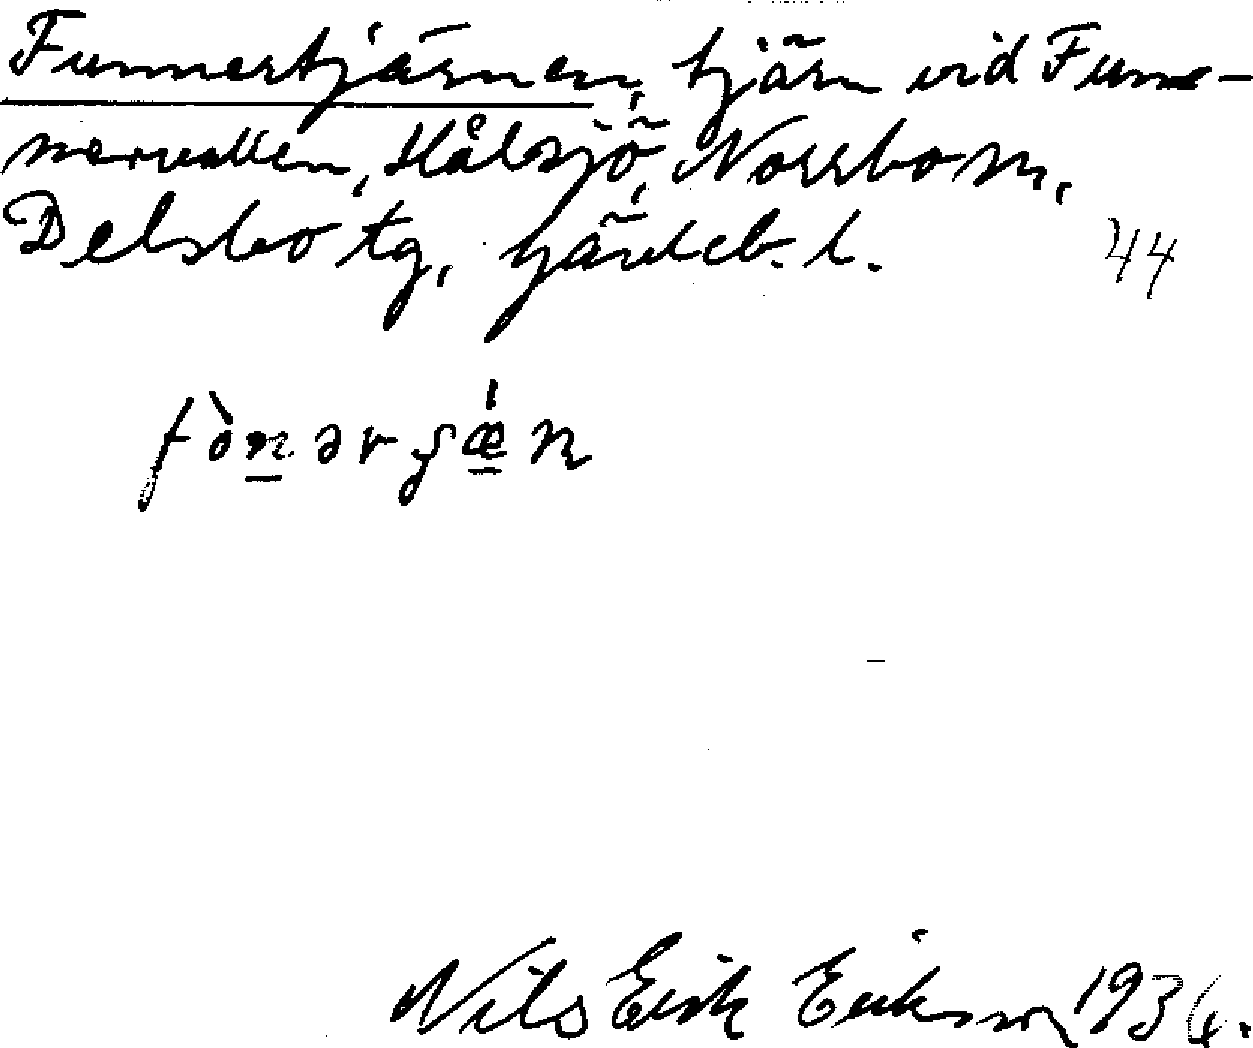 Funnertjärnen, tjärn vid Fun-
nervallen, Hålsjö, Norrbo sn,
Delsbo tg, Gävleb. l. 44
fònərꞔǽn
Nils Erik Erikson 1936.